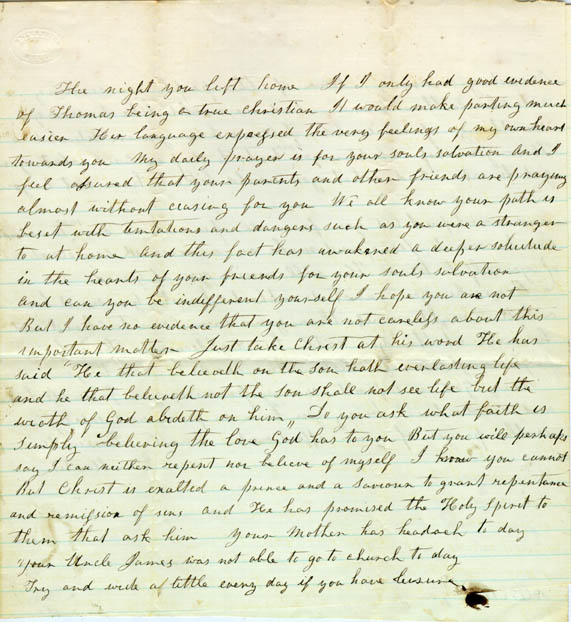 The night you left home If I only had good evidence
of Thomas being a true christian It would make parting much
easier Her language expressed the very feelings of my own heart
towards you My daily prayer is for your souls salvation and I
feel assured that your parents and other friends are praying
almost without ceasing for you We all know your path is
beset with temtations and dangers such as you were a stranger
to at home and this fact has awakened a deeper solicitude
in the hearts of your friends for your souls salvation
and can you be indifferent yourself I hope you are not
But I have no evidence that you are not careless about this
important matter Just take Christ at his word He has
said "He that believeth on the son hath everlasting life
and he that believeth not the son shall not see life but the
wrath of God abideth on him" Do you ask what faith is
Simply believing the love God has to you But you will perhaps
say I can neither repent nor believe of myself I know you cannot
But Christ is exalted a prince and a saviour to grant repentance
and remission of sins and He has promised the Holy Spirit to
them that ask him your Mother has headach to day
your Uncle James was not able to go to church to day
Try and write a little every day if you have leisure